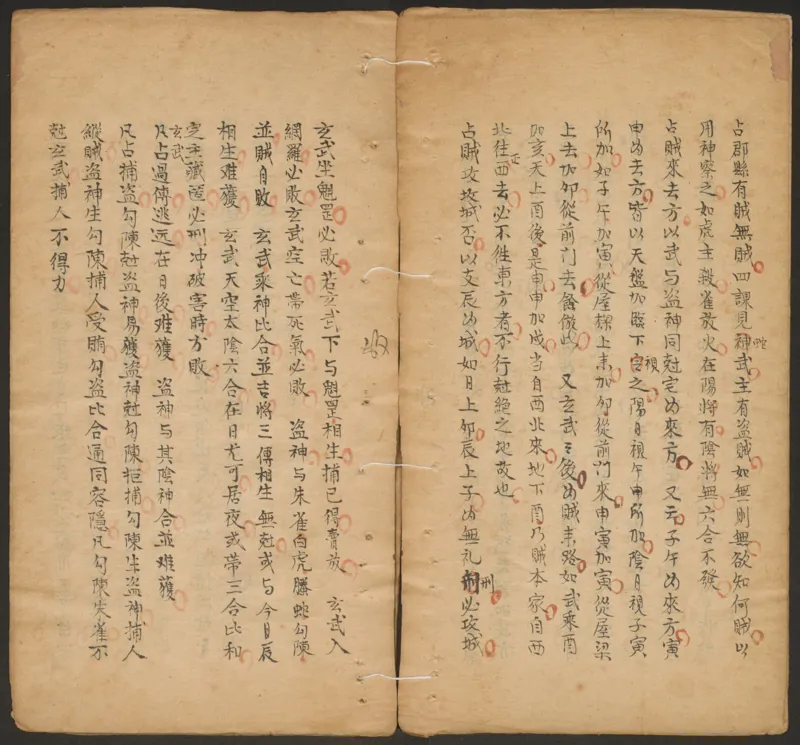 占郡縣有賊無賊四課見神武主有盜賊如無則無欲知何賊以
蛇
用神察之如虎主殺雀放火在陽將有陰將無六合不發
占賊來去方以武与盜神同尅定為來方 又云子午為來方寅
申為去方皆以天盤加臨下定之陽日視午申所加陰日視子寅
視
所加如子午加寅從屋樑上來加卯從前門來申寅加寅從屋梁
上去加卯從前門去餘倣此 又玄武三後為賊來路如武乘酉
加亥天上酉後是申申加戌当自西北來地下酉乃賊本家自西
北往西去必不往東方者不行尅絕之地故也
正
占賊攻城否以支辰為城如日上卯辰上子為無礼刑必攻城
刑
玄武坐魁罡必敗若玄武下与魁罡相生捕已得賣放 玄武入
網羅必敗玄武空亡帶死氣必敗 盜神与朱雀白虎騰蛇勾陳
並賊自敗 玄武乘神比合並吉將三傳相生無尅或与今日辰
相生难獲 玄武天空太陰六合在日尤可居夜或帶三合比和
定主藏匿必刑冲破害時方敗
凡占過傳逃远在日後难獲 盜神与其陰神合並难獲
玄武
凡占捕盜勾陳尅盜神易獲盜神尅勾陳拒捕勾陳生盜神捕人
縱賊盜神生勾陳捕人受賄勾盜比合通同容隱凡勾陳朱雀不
尅玄武捕人不得力